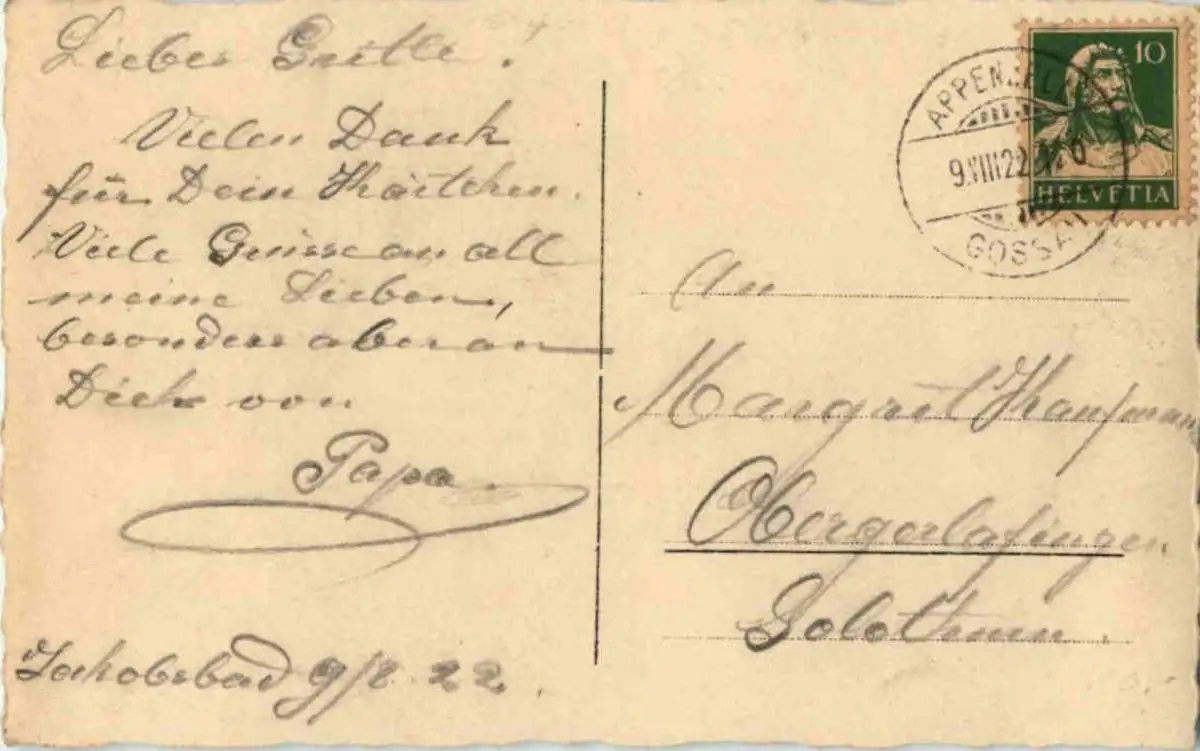 Liebes Gritle!
Vielen Dank
für Dein Kärtchen.
Viele Grüsse an all
meine Lieben,
besonders aber an
Dich von
Papa.
Jakobsbad 9/8. 22.
10
HELVETIA
APPENZELL
9.VIII.22
GOSSAU
An
Margrit Kaufmann
Obergerlafingen
Solothurn.